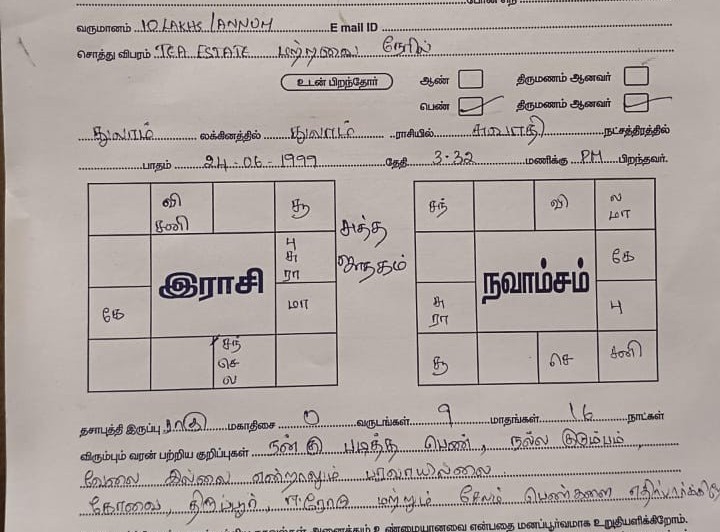 வருமானம் 10 LAKHS / ANNUM E mail ID
சொத்து விபரம் TEA ESTATE மற்றவை நேரில்
உடன் பிறந்தோர் ஆண் திருமணம் ஆனவர்
பெண் திருமணம் ஆனவர்
துலாம் லக்கினத்தில் துலாம் ராசியில் சுவாதி நட்சத்திரத்தில்
பாதம் 24-06-1999 தேதி 3.32 மணிக்கு PM பிறந்தவர்.
வி சூ சந் வி ல
சனி மா
சுத்த
பு
சு
ரா
ஜாதகம் கே
இராசி நவாம்சம்
கே மா சு
ரா
பு
சந்
செ
ல
சூ செ சனி
தசாபுத்தி இருப்பு ராகு மகாதிசை 0 வருடங்கள் 9 மாதங்கள் 16 நாட்கள்
விரும்பும் வரன் பற்றிய குறிப்புகள் நன்கு படித்த பெண், நல்ல குடும்பம்,
வேலை இல்லை என்றாலும் பரவாயில்லை
கோவை, திருப்பூர், ஈரோடு மற்றும் சேலம் பெண்களை
அனைத்தும் உண்மையானவை என்பதை மனப்பூர்வமாக உறுதியளிக்கிறோம்.